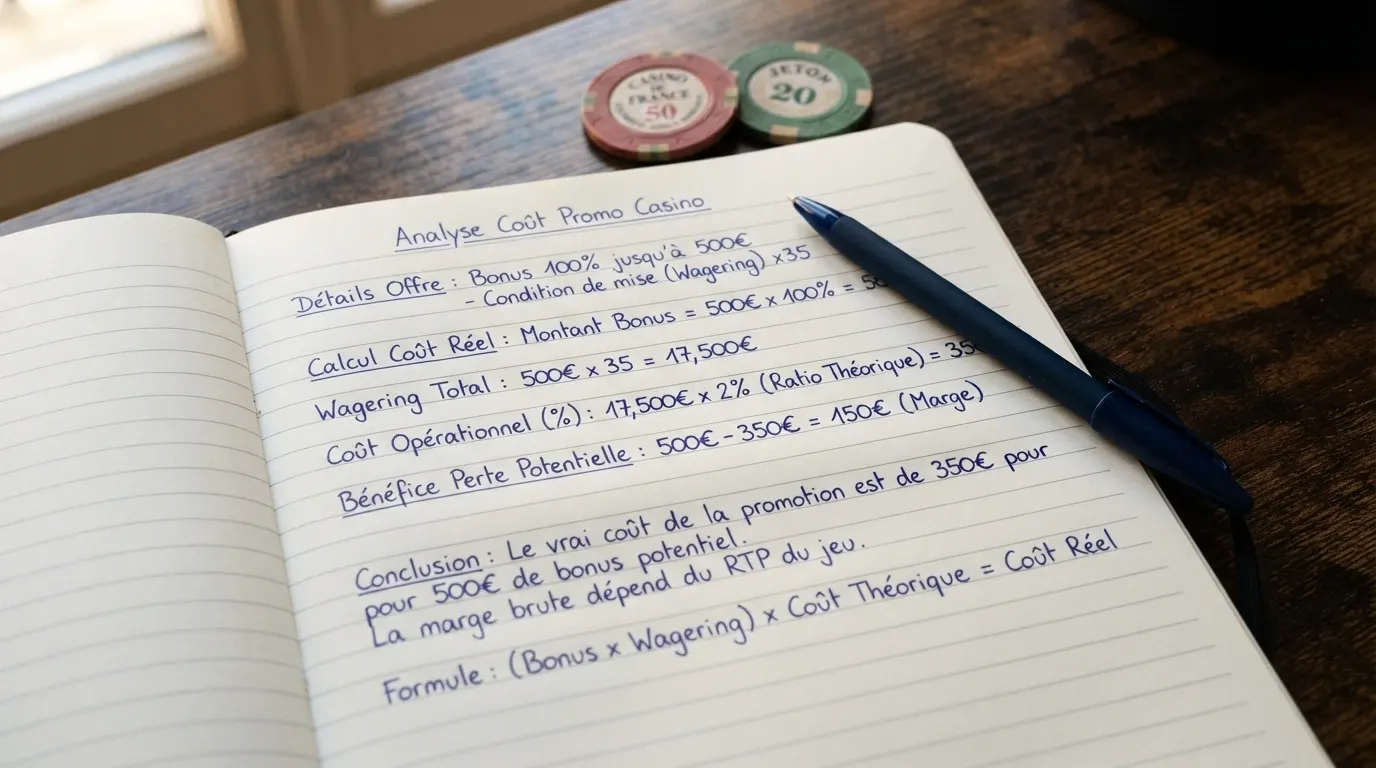 CASINO
DE
FRANCE
50
JETON
20
Analyse Coût Promo Casino
Détails Offre : Bonus 100% jusqu'à 500€
- Condition de mise (Wagering) x35
Calcul Coût Réel : Montant Bonus = 500€ x 100% =
Wagering Total : 500€ x 35 = 17,500€
Coût Opérationnel (%) : 17,500€ x 2% (Ratio Théorique) =
Bénéfice Perte Potentielle : 500€ - 350€ = 150€ (Marge)
Conclusion : Le vrai coût de la promotion est de 350€ pour
pour 500€ de bonus potentiel.
La marge brute dépend du RTP du jeu.
Formule : (Bonus x Wagering) x Coût Théorique = Coût Réel